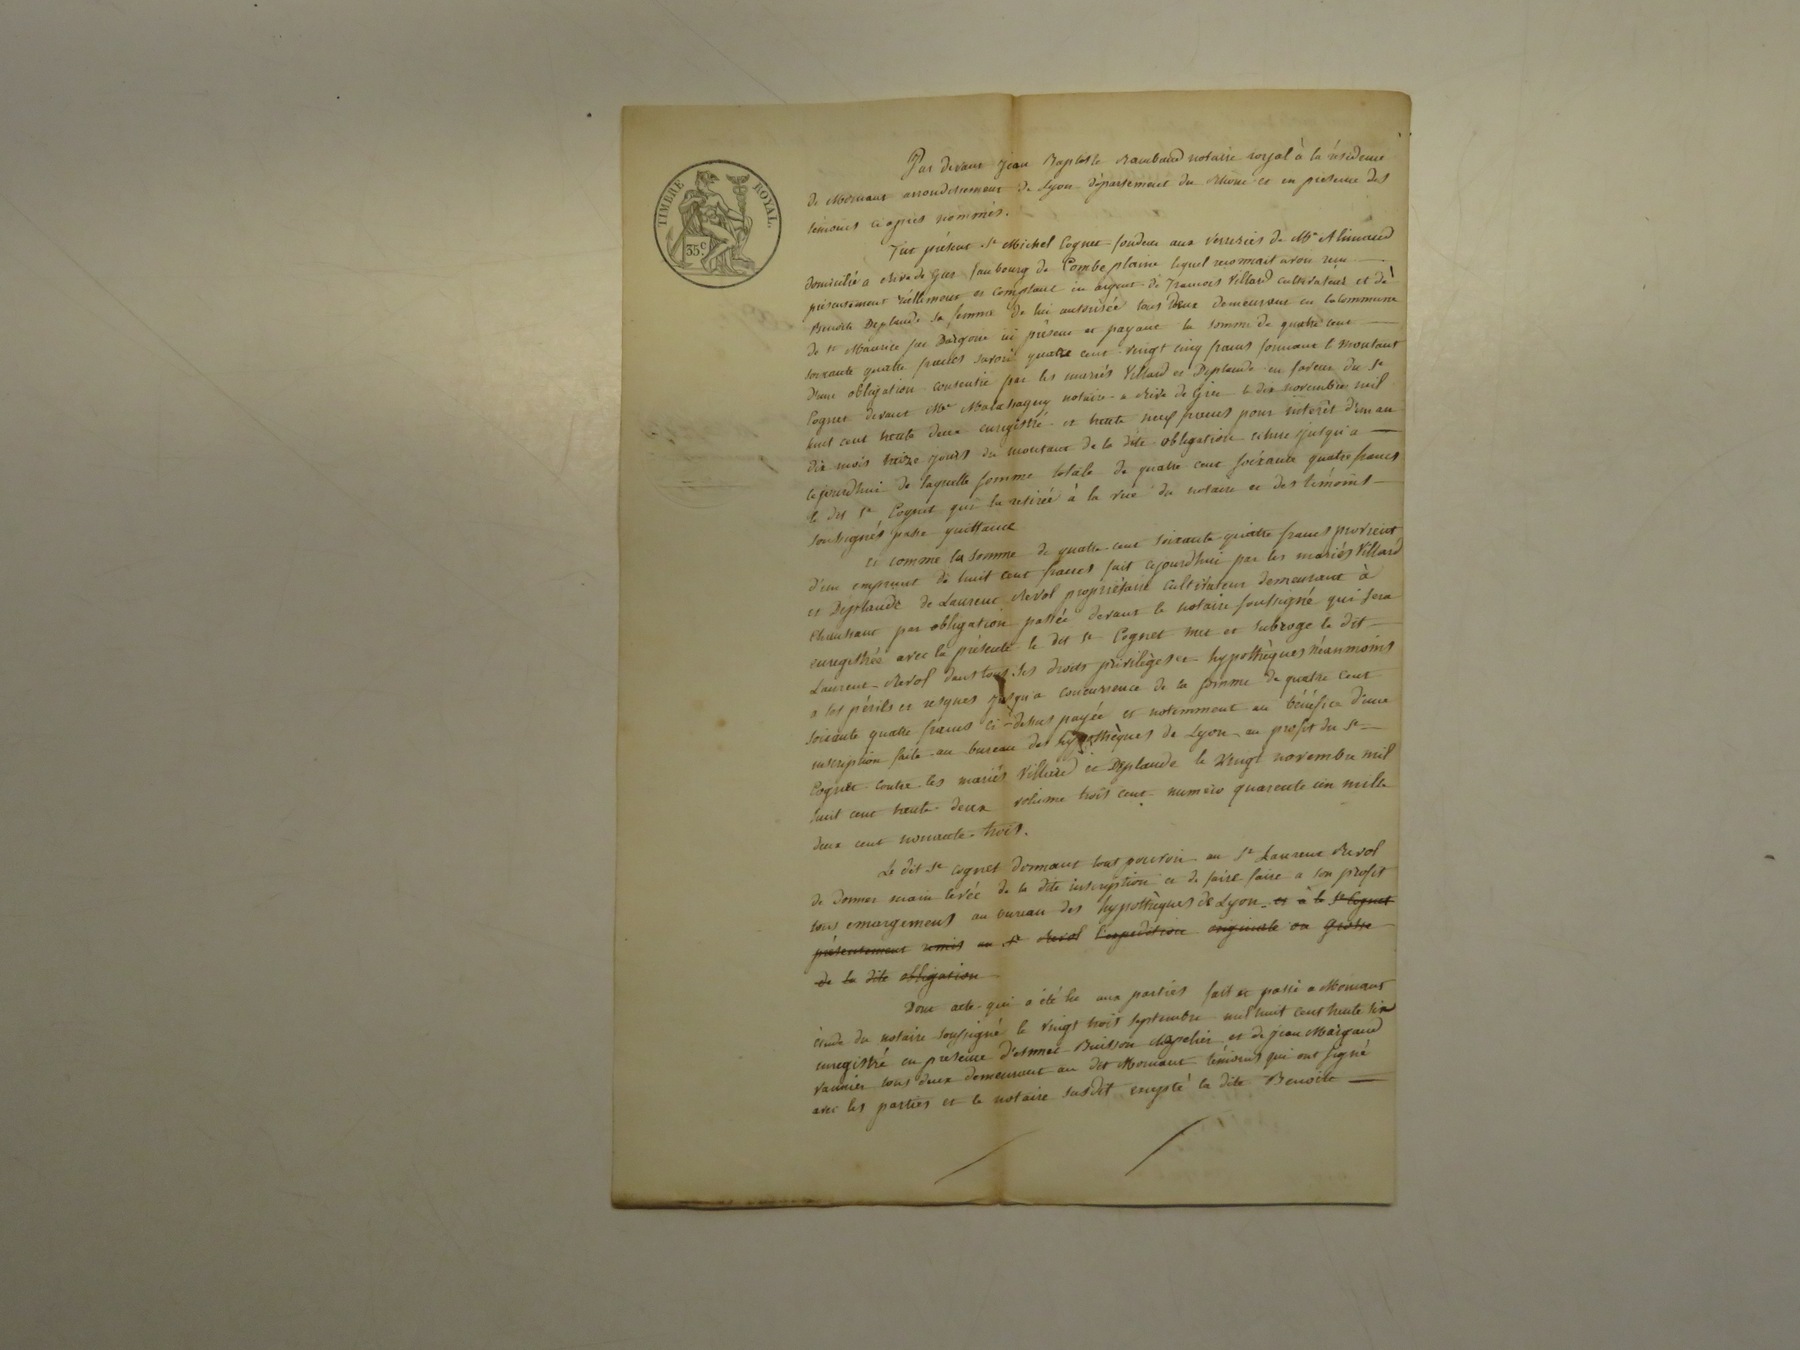 TIMBRE ROYAL
35.c
Par devant Jean Baptiste Raimbaud notaire royal à la résidence
de Mornant arrondissement de Lyon département du Rhone et en présence des
témoins ci après nommés.
Fut présent Sr Michel Cognet fondeur aux verreries de Mr Alimand
domicilié a Rive de Gier faubourg de Combe plaine lequel reconnait avoir reçu
présentement réellement et comptant en argent de François Villard cultivateur et de
Benoite Deplaude sa femme de lui autorisée tous deux demeurant en la commune
de St Maurice sur Dargoire ici présent et payant la somme de quatre cent
soixante quatre francs savoir quatre cent vingt cinq francs formant le montant
d'une obligation consentie par les mariés Villard et Deplaude en faveur du Sr
Cognet devant Me notaire a Rive de Gier le dix novembre mil
huit cent trente deux enregistré et trente neuf francs pour intérêt d'un an
dix mois treize jours du montant de la dite obligation échue jusqu'a
cejourdhui de laquelle somme totale de quatre cent soixante quatre francs
le dit Sr Cognet qui l'a retirée à la vue du notaire et des témoins
soussignés passe quittance
Et comme la somme de quatre cent soixante quatre francs provient
d'un emprunt de huit cent francs fait cejourdhui par les mariés Villard
et Deplaude de Laurent Revol propriétaire cultivateur demeurant à
Chaussant par obligation passée devant le notaire soussigné qui sera
enregistrée avec la présente le dit Sr Cognet met et subroge le dit
Laurent Revol dans tous ses droits privilèges et hypothèques néanmoins
a ses périls et risques jusqu'a concurrence de la somme de quatre cent
soixante quatre francs ci-dessus payée et notemment au bénéfice d'une
inscription faite au bureau des hypothèques de Lyon au profit du Sr
Cognet contre les mariés Villard et Deplaude le vingt novembre mil
huit cent trente deux volume trois cent numéro quarente un mille
deux cent nonante-trois.
Le dit Sr Cognet donnant tout pouvoir au Sr Laurent Revol
de donner main levée de la dite inscription et de faire faire a son profit
tous emargements au bureau des hypothèques de Lyon et à le Sr Cognet
présentement remis au Sr Revol l'expedition originale ou Grosse
de la dite obligation
Dont acte qui a été lu aux parties fait et passé a Mornant
étude du notaire soussigné le vingt trois septembre mil huit cent trente
enregistré en présence Buisson et de Jean Margaud
tous deux demeurant au dit Mornant témoins qui ont signé
avec les parties et le notaire susdit excepté la dite Benoite